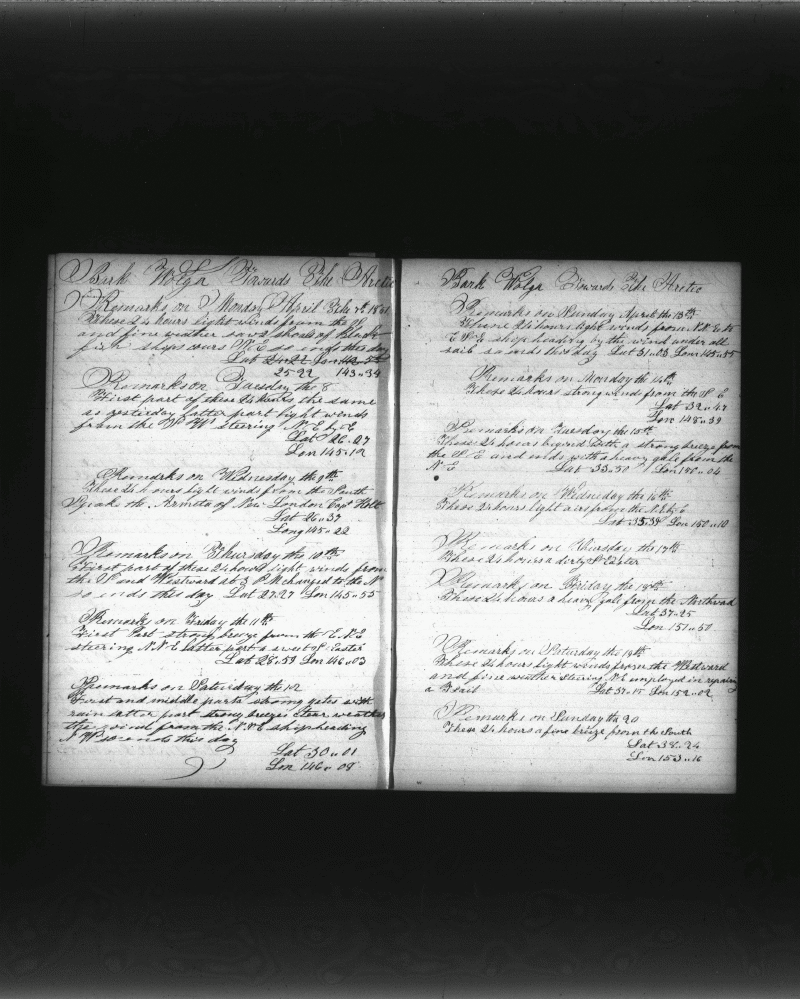 Bark Wolga Towards The Arctic
Remarks on Monday April The 7th
These 24 hours light winds from the
and fine weather saw 2 shoals of Black
fish ships cours N.E. so ends this day
Lat 24"22 Lon 142"50
25-22 143"34
Remarks on Tuesday the 8
First part of these 24 hours the same
as yesterday latter part light winds
from the S W steering N.E by E
Lat 26"27
Lon 145"12
Remarks on Wednesday the 9th
These 24 hours light winds from the South
Speake the Armeta of New London Capt Holt
Lat 26"37
Long 145"22
Remarks on Thursday the 10th
First part of these 24 hours light winds from
the S and Westward at 3 P.M changed to the N
so ends this day Lat 27"27 Lon 145"55
Remarks on Friday the 11th
First Part strong breeze from the E.N.E
steering N.N.E latter part a sweet S Easter
Lat 28"59 Lon 146"03
Remarks on Saturday the 12
First and middle parts strong gales with
rain latter part strong breezes clear weather
the wind from the N.N.E ship heading
N.W so ends this day
Lat 30"01
Lon 146"08
Bark Wolga Towards The Arctic
Remarks on Sunday April the 13th
These 24 hours light winds from N.N.E to
E.S.E ship heading by the wind under all
sail so ends this day Lat 31"03 Lon 145"55
Remarks on Monday the 14th
These 24 hours strong winds from the S.E
Lat 32"47
Lon 148"39
Remarks on Tuesday the 15th
These 24 hours begins with a strong breeze from
the S.E and ends with a heavy gale from the
N.E Lat 33"50 Lon 150"04
Remarks on Wednesday the 16th
These 24 hours light airs from the N.E by E
Lat 35"34 Lon 150"10
Remarks on Thursday the 17th
These 24 hours a dirty S Easter
Remarks on Friday the 18th
These 24 hours a heavy Gale from the Northward
Lat 37"25
Lon 151"50
Remarks on Saturday the 19th
These 24 hours light winds from the Westward
and fine weather steering N.E employed in repairing
a Sail Lat 37"15 Lon 152"02
Remarks on Sunday the 20
These 24 hours a fine breeze from the South
Lat 38"24
Lon 153"16